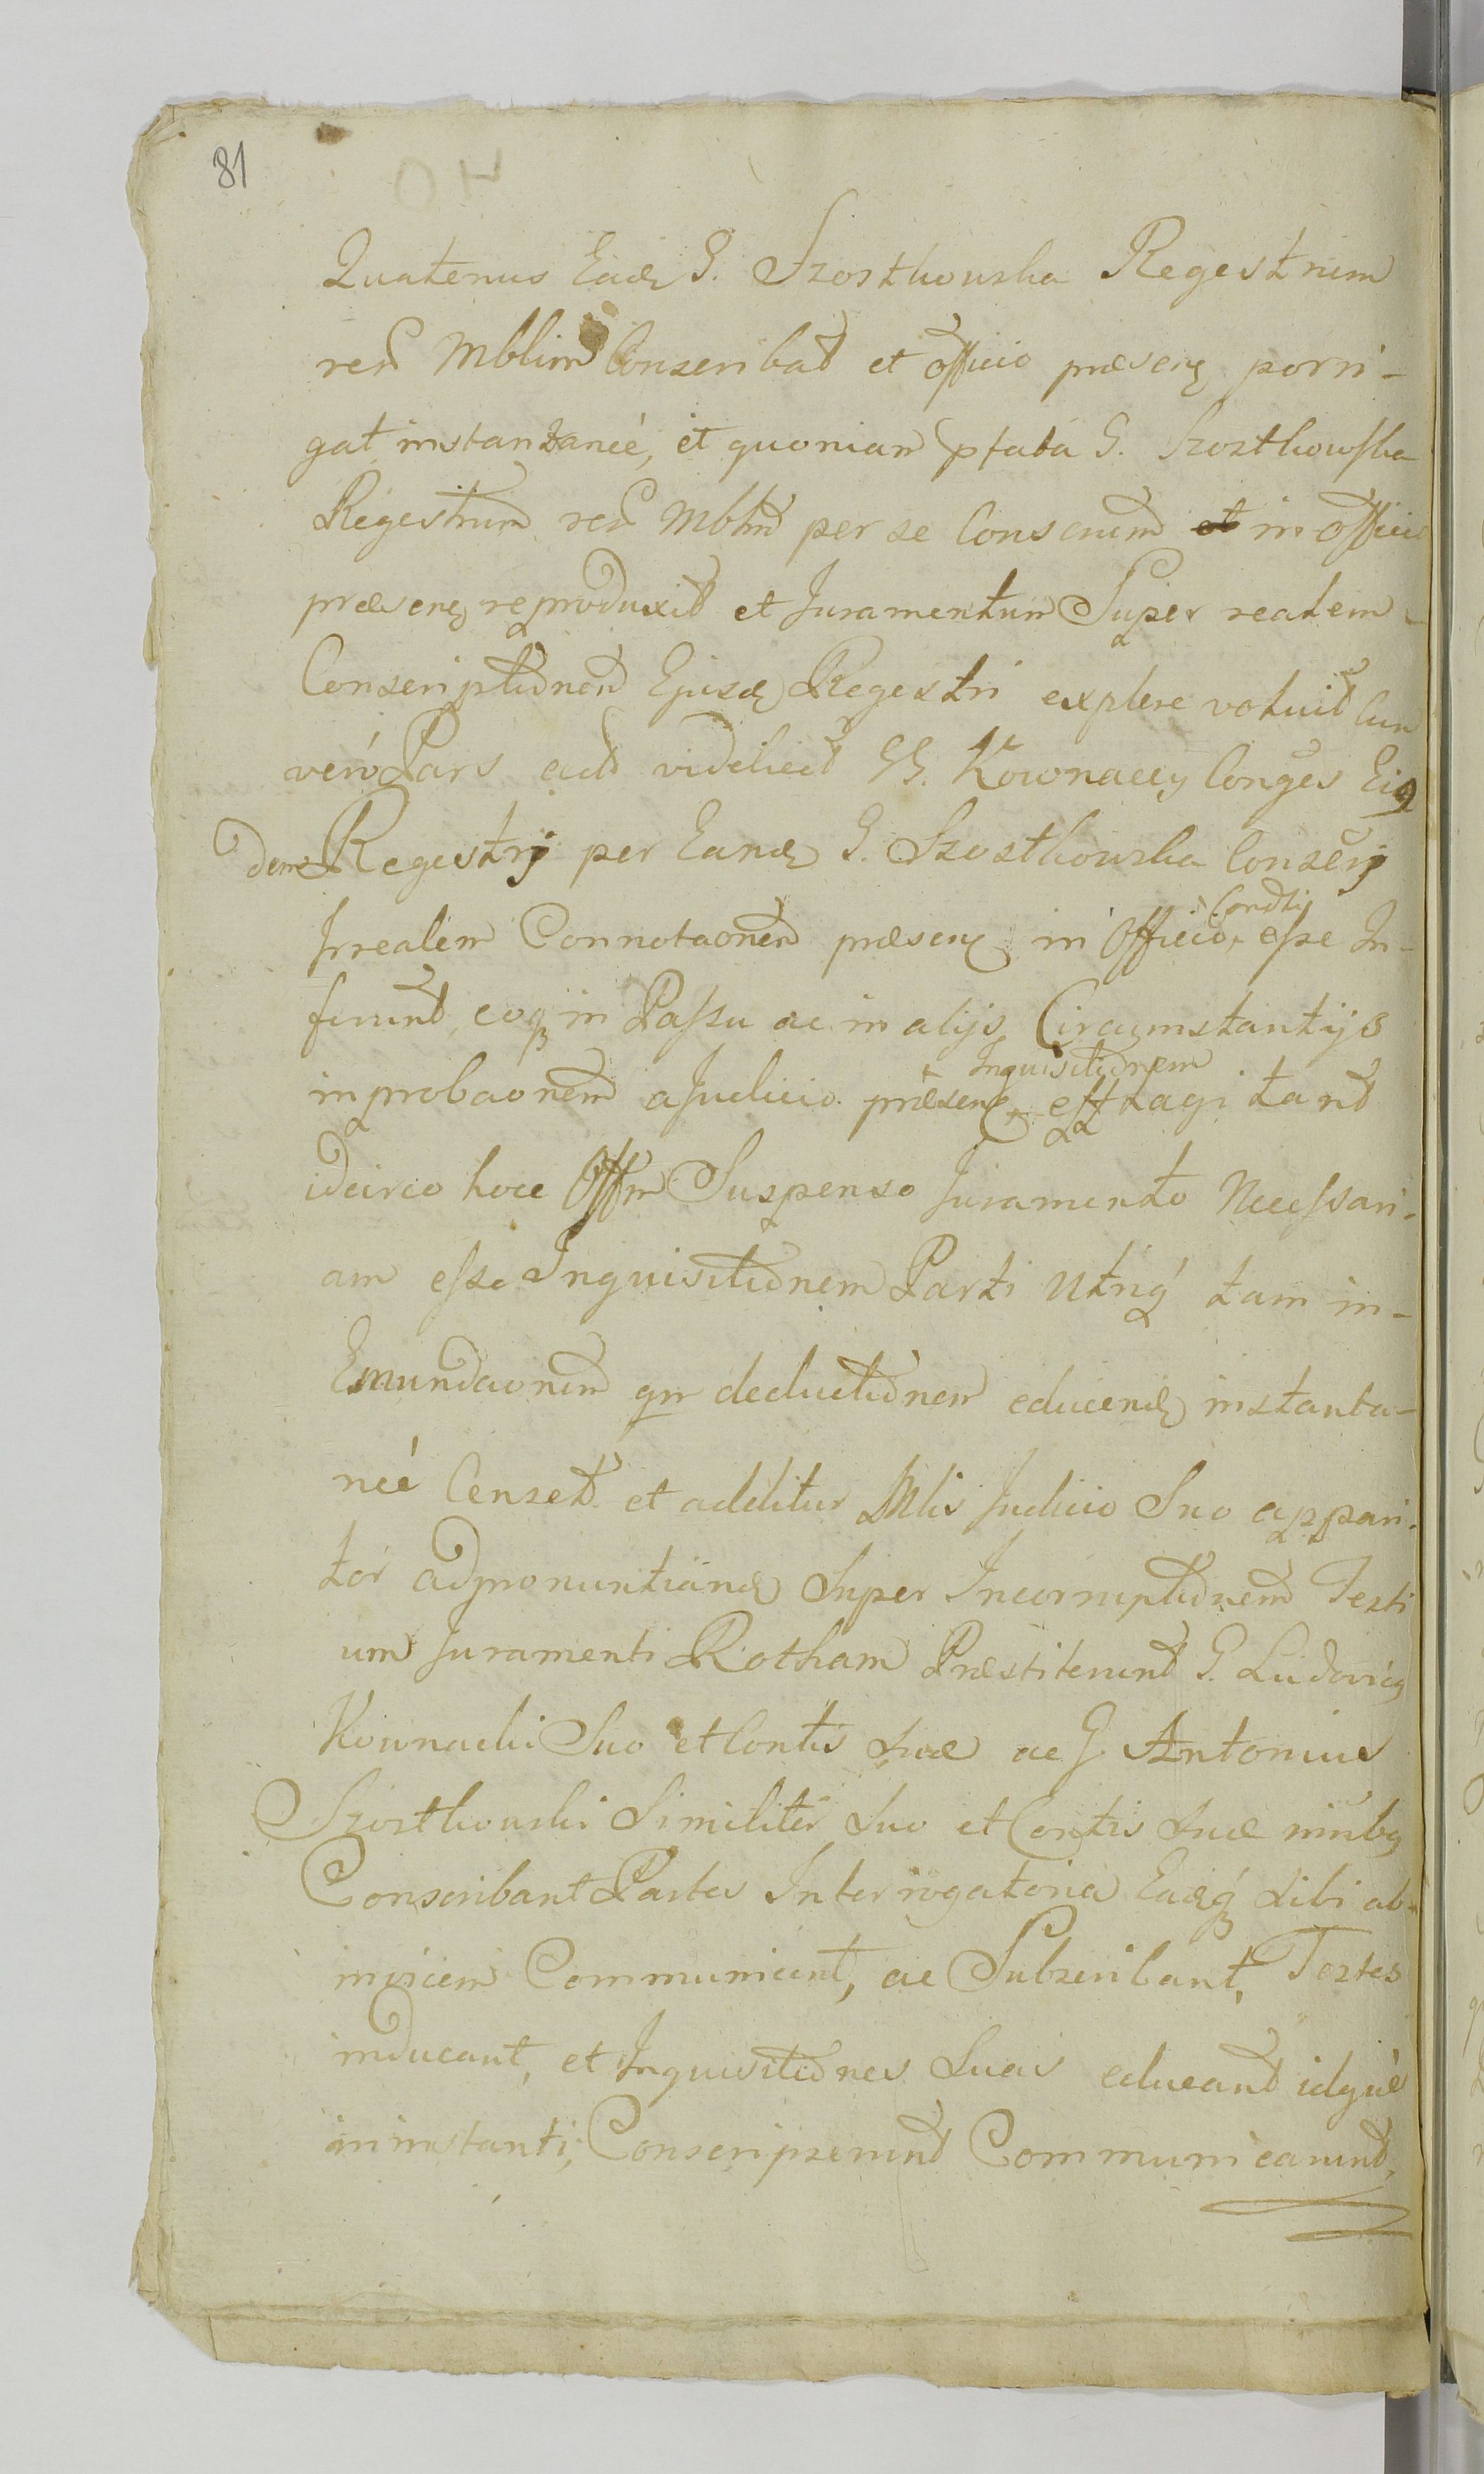 81
Quatenus Ead G. Szostkowska Regestrum
rerū Mblium Conscribat et Officio præsenti porri-
gat instantaneé, et quoniam pfata G. Szostkowska
Regestrum rerū Mblium per se Conscrium et in Officio
præsenti reproduxit et Juramentum Super realem
Conscriptionem Ejusd Regestri explere voluit Cum
veró Pars act videlicet GG. Kownaccy Conges Eius
dem Regestrj per Eand G. Szostkowska Conscrj
Irrealem Connotaonem præsenti in Officio Condtij esse In-
ferunt, eoq in Passu ac in alijs Circumstantijs
in probaonem a Judicio præsenti Inquisitionem efflagitant
idcirco hocce Offm Suspenso Juramento Necessari-
am esse Inquisitionem Parti Utriq́ tam in
Emundaonem qm deductionem educend instanta-
neé Censet et additur Mlis Judicio Suo appari-
tor ad pronuntiand Super Incorruptionem Testi
um Juramenti Rotham Præstiterunt G. Ludovicq
Kownacki Suo et Contis Suæ ac G Antonius
Szostkowski Similiter Suo et Contis Suæ niibq
Conscribant Partes Interrogatoria Eaqq́ Sibi ab
invicem Communicent, ac Subscribant, Testes
inducant, et Inquisitiones Suas educant idqué
in instanti, Conscripserunt Communicarunt,